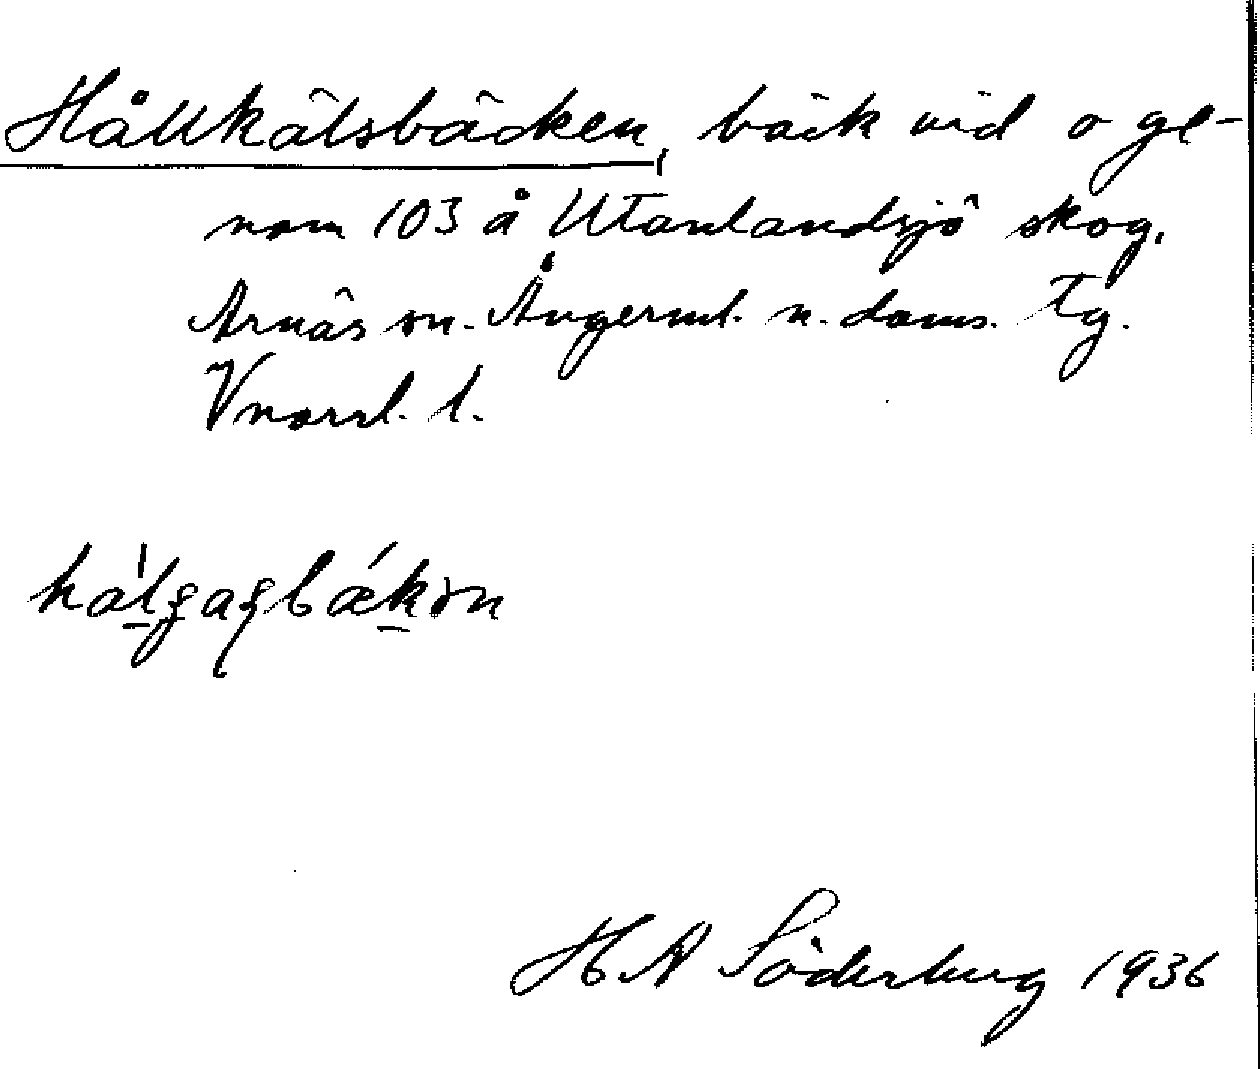 Hållkälsbäcken, bäck vid o ge-
nom 103 å Utanlandsjö skog.
Arnäs sn. Ångerml. n. doms. Tg.
Vnorrl. l.
H A Söderberg 1936